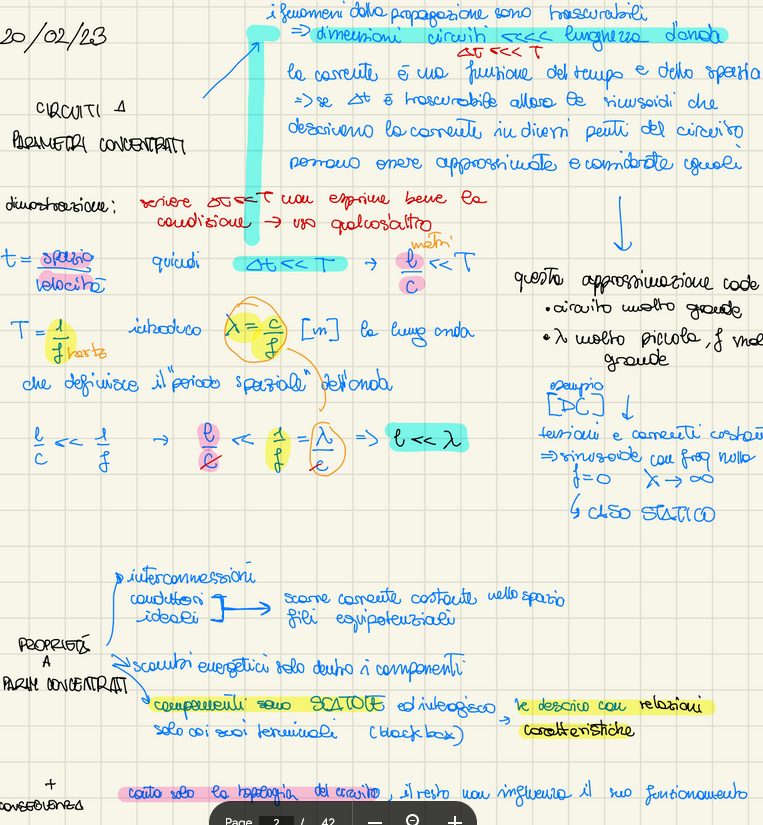 i fenomeni della propagazione sono trascurabili
20/02/23
=> dimensioni circuiti <<<< lunghezza d'onda
Δt <<< T
la corrente è una funzione del tempo e dello spazio
=> se Δt è trascurabile allora le sinusoidi che
descrivono la corrente in diversi punti del circuito
possono essere approssimate e considerate uguali
CIRCUITI A
PARAMETRI CONCENTRATI
dimostrazione:
scrivere Δt << T non esprime bene la
condizione → uso qualcos'altro
metri
t = spazio / velocità quindi Δt << T → l/c << T
T = 1/f hertz introduco λ = c/f [m] la lung onda
che definisce il "periodo spaziale" dell'onda
l/c << 1/f → l/c << 1/f = λ/c => l << λ
questa approssimazione cade
• circuito molto grande
• λ molto piccola, f mol
grande
esempio
[DC] ↓
tensioni e correnti costan
=> sinusoide con freq nulla
f=0 λ → ∞
↳ CASO STATICO
PROPRIETÀ
A
PARAM CONCENTRATI
interconnessioni
conduttori
ideali
scorre corrente costante nello spazio
fili equipotenziali
scambi energetici solo dentro i componenti
componenti sono SCATOLE ed interagisco → le descrivo con relazioni
solo coi suoi terminali (blackbox) caratteristiche
+
CONSEGUENZA
conta solo la topologia del circuito, il resto non influenza il suo funzionamento
Page 2 / 42 — +